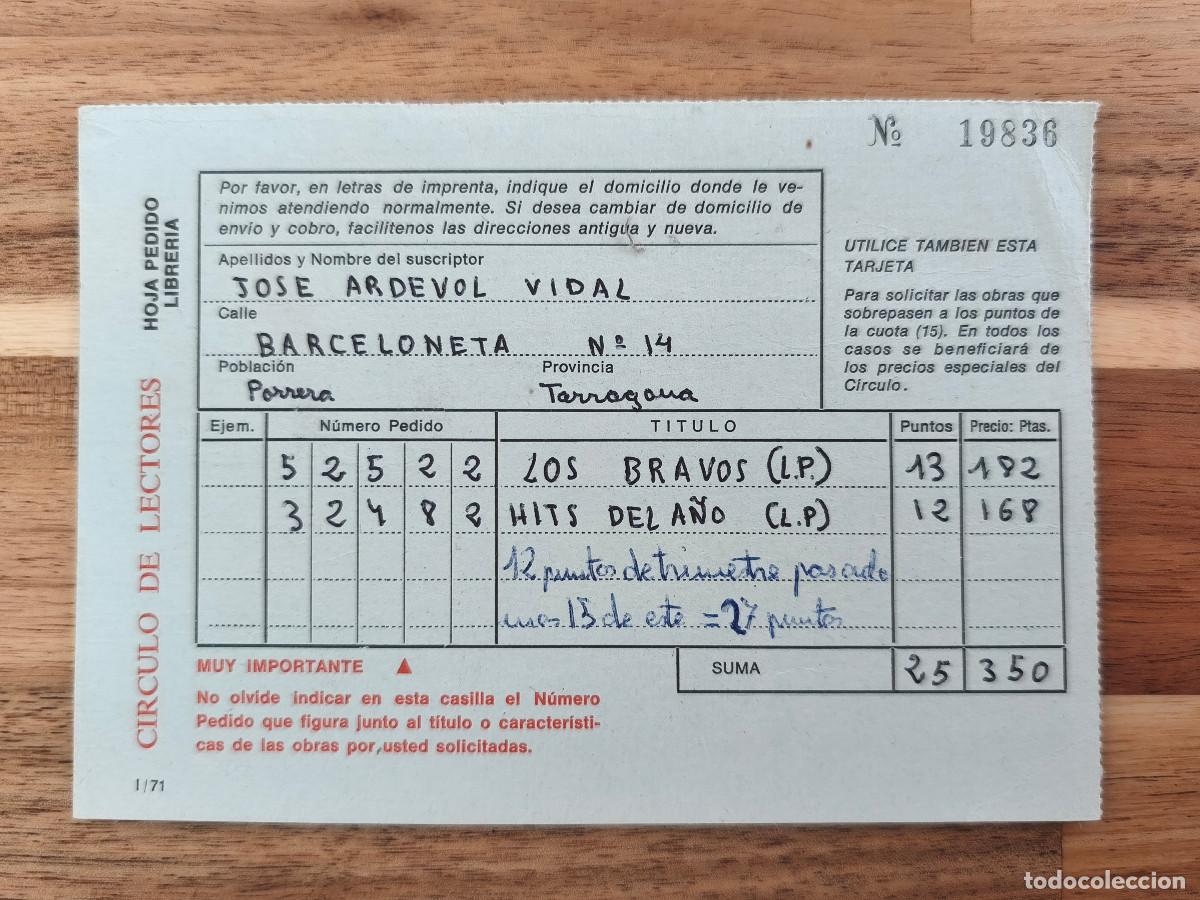 Nº 19836
HOJA PEDIDO
LIBRERIA
CIRCULO DE LECTORES
Por favor, en letras de imprenta, indique el domicilio donde le ve-
nimos atendiendo normalmente. Si desea cambiar de domicilio de
envío y cobro, facilitenos las direcciones antigua y nueva.
Apellidos y Nombre del suscriptor
JOSE ARDEVOL VIDAL
Calle
BARCELONETA Nº 14
Población Provincia
Porrera Tarragona
UTILICE TAMBIEN ESTA
TARJETA
Para solicitar las obras que
sobrepasen a los puntos de
la cuota (15). En todos los
casos se beneficiará de
los precios especiales del
Círculo.
Ejem. Número Pedido TITULO Puntos Precio: Ptas.
5 2 5 2 2 LOS BRAVOS (L.P.) 13 182
3 2 4 8 2 HITS DEL AÑO (L.P) 12 168
12 puntos de trimestre pasado
mas 15 de este = 27 puntos
SUMA 25 350
MUY IMPORTANTE ▲
No olvide indicar en esta casilla el Número
Pedido que figura junto al título o característi-
cas de las obras por usted solicitadas.
I/71
todocoleccion